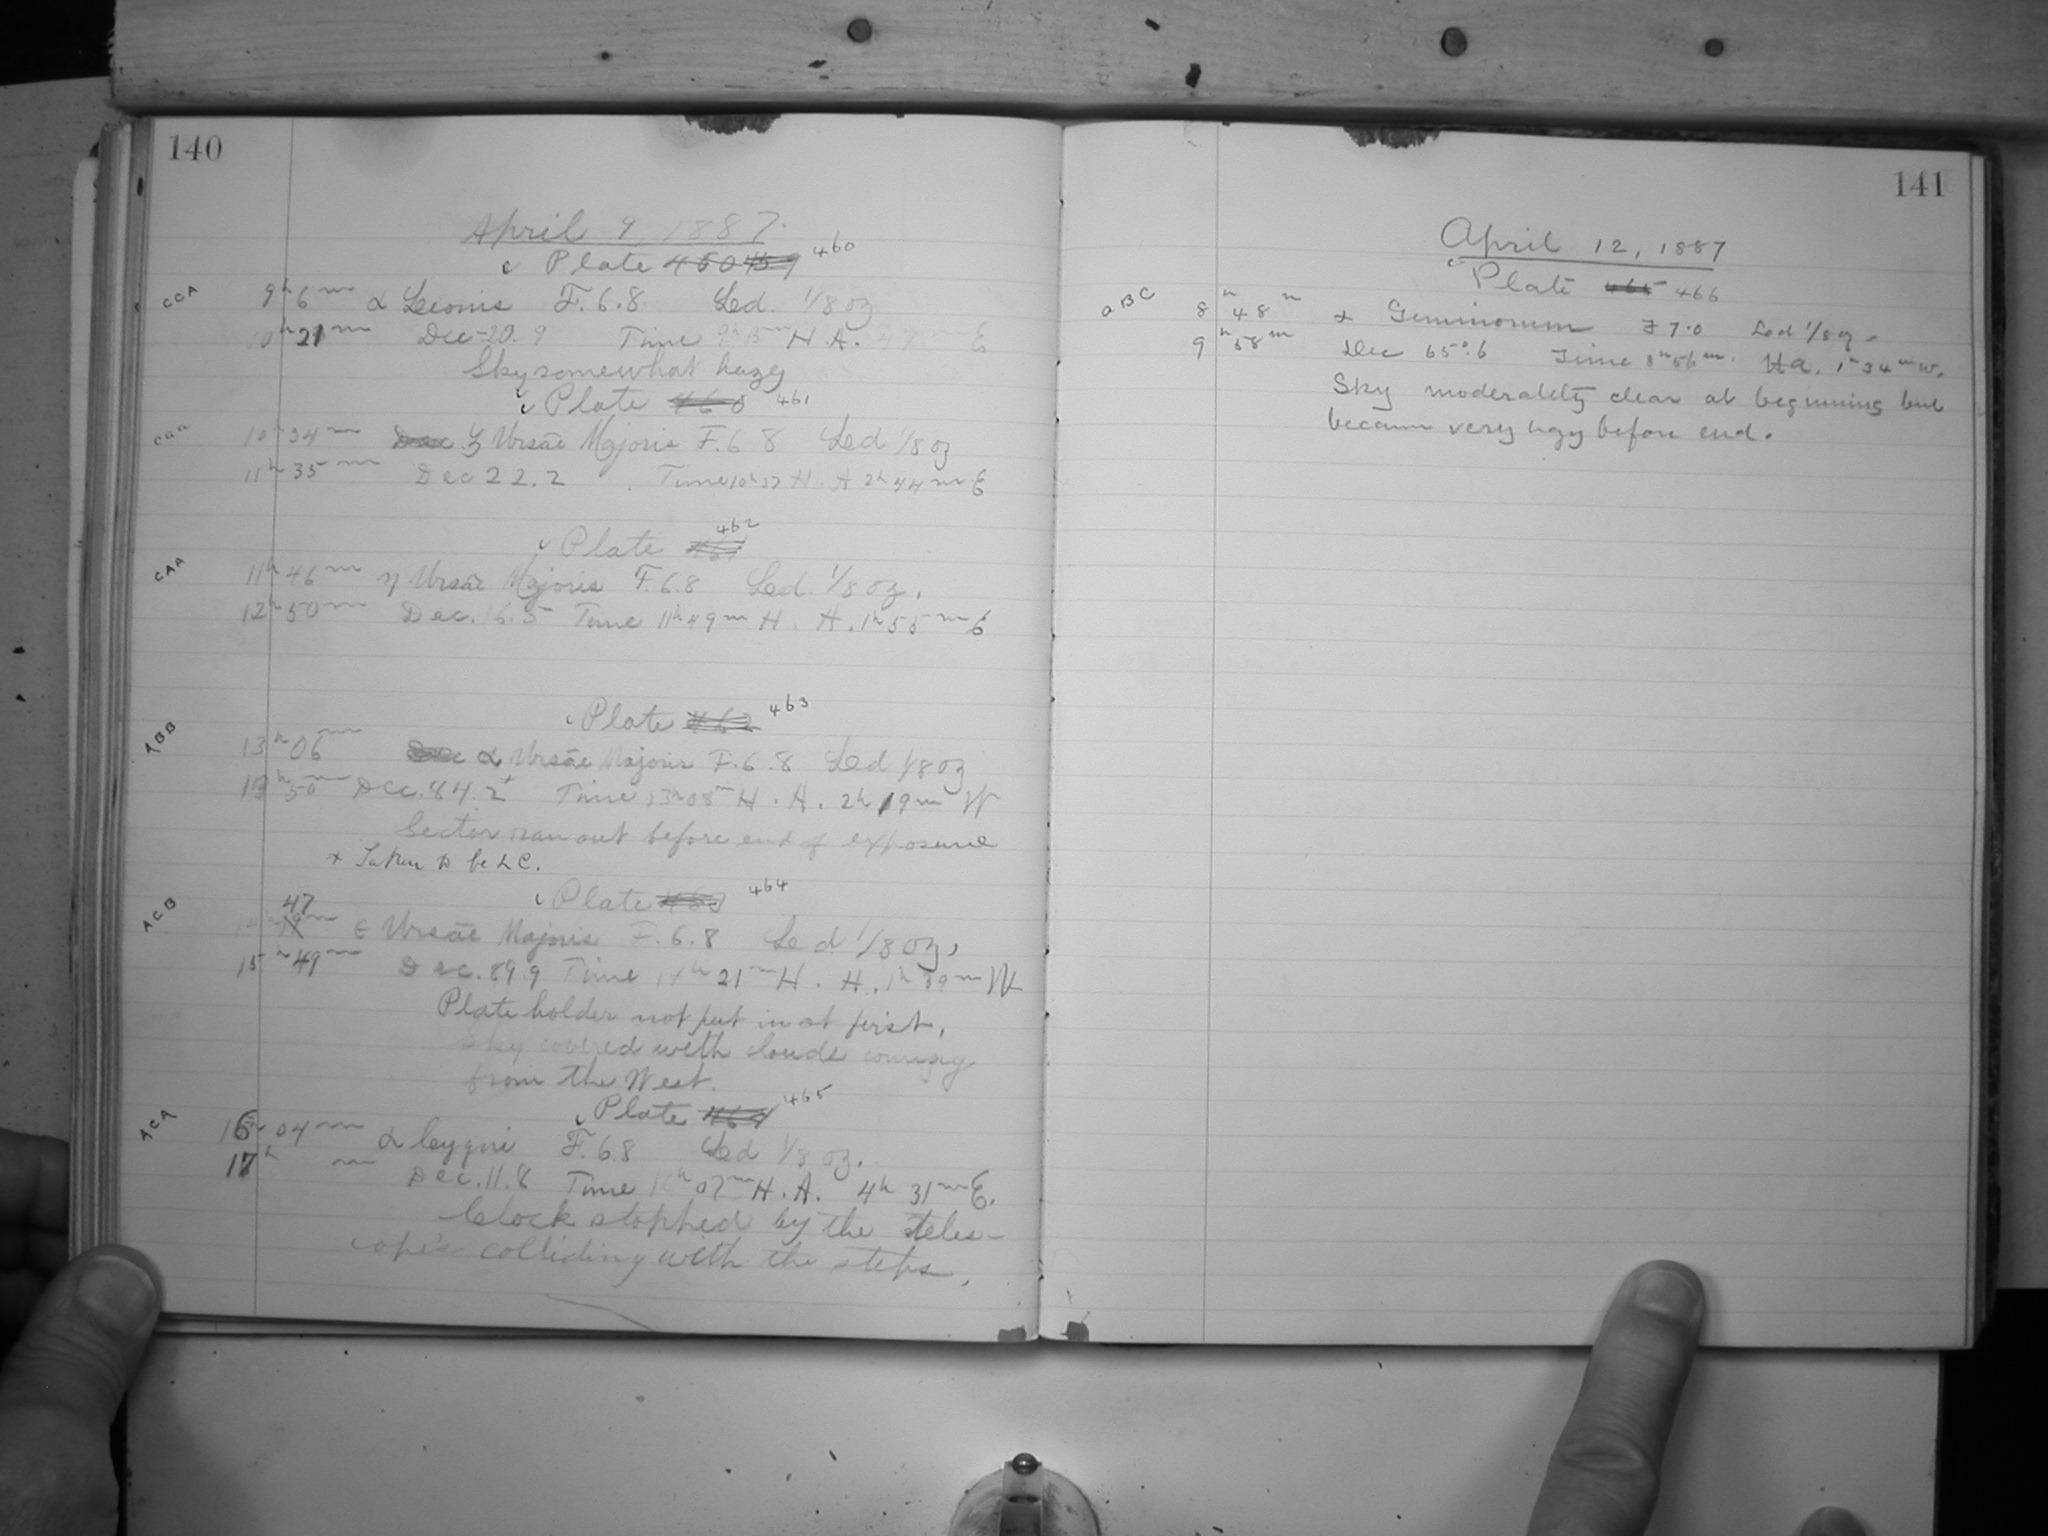 140
April 9 1887.
Plate 460 459 460
CCA 9h 6m α Leonis F. 6.8 Led. 1/8 oz
10h 21m Dec -20.9 Time 9h 15m H.A. E
Sky somewhat hazy
Plate 460 461
caa 10h 34m Dec ζ Ursae Majoris F. 6 8 Led 1/8 oz
11h 35m Dec 22.2 Time 10h 37 H. A 2h 44m E
Plate 461 462
CAA 11h 46m η Ursae Majoris F. 6.8 Led. 1/8 oz.
12h 50m Dec. 16.5 Time 11h 49m H. A. 1h 55m E
Plate 462 463
ABB 13h 06m α Ursae Majoris F. 6.8 Led 1/8 oz
13h 50m Dec. 84.2+ Time 13h 08m H. A. 2h 19m W
Sector ran out before end of exposure
+ Taken to be L C.
Plate 463 464
ACB 47m ε Ursae Majoris F. 6.8 Led 1/8 oz,
15h 49m Dec. 89.9 Time 14h 21m H. A. 1h 39m W
Plate holder not put in at first,
Sky covered with clouds coming
from the West.
Plate 464 465
ACA 16h 04m α Cygni F. 6.8 Led 1/8 oz.
17h m Dec. 11.8 Time 16h 07m H.A. 4h 31m E.
Clock stopped by the teles-
cope's colliding with the steps,
141
April 12, 1887
Plate 465 466
aBC 8h 48m α Geminorum F 7.0 Led 1/8 oz.
9h 58m Dec 65°.6 Time 8h 56m. Ha. 1h 34m W.
Sky moderately clear at beginning but
became very hazy before end.